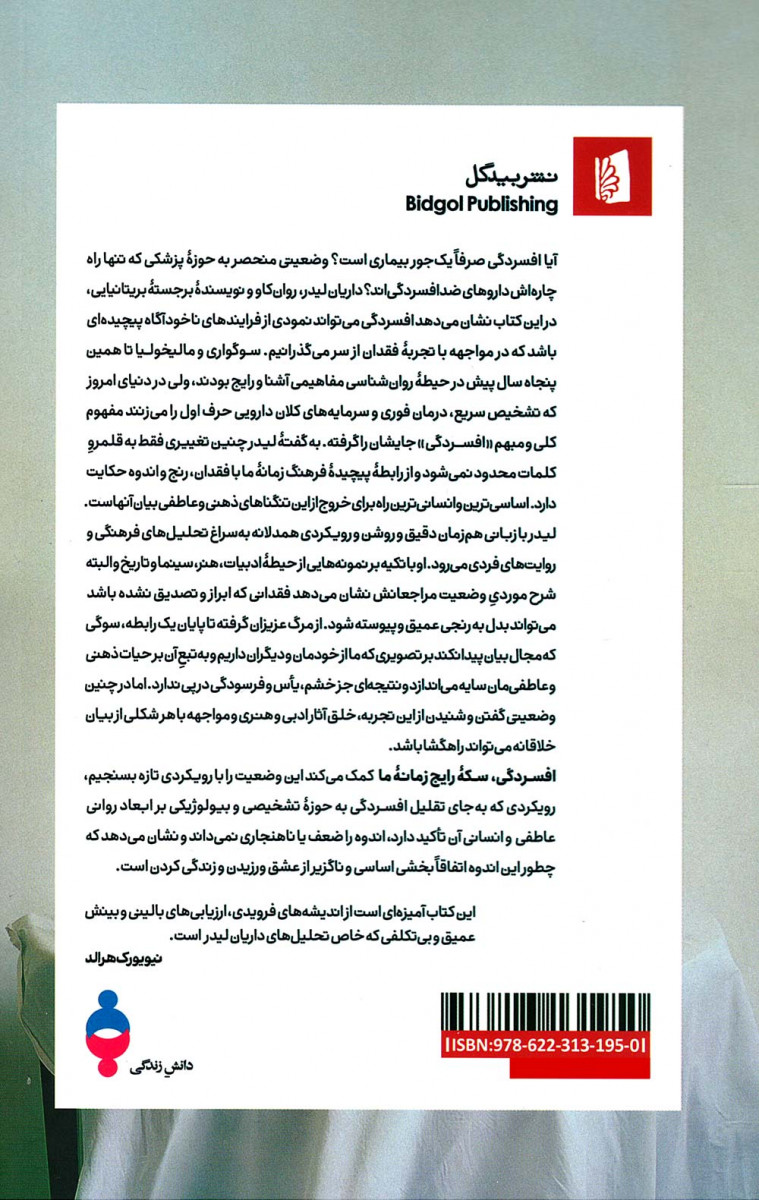 نشر بیدگل
Bidgol Publishing
آیا افسردگی صرفاً یک جور بیماری است؟ وضعیتی منحصر به حوزهٔ پزشکی که تنها راه
چاره‌اش داروهای ضدافسردگی‌اند؟ داریان لیدر، روان‌کاو و نویسندهٔ برجستهٔ بریتانیایی،
در این کتاب نشان می‌دهد افسردگی می‌تواند نمودی از فرایندهای ناخودآگاه پیچیده‌ای
باشد که در مواجهه با تجربهٔ فقدان از سر می‌گذرانیم. سوگواری و مالیخولیا تا همین
پنجاه سال پیش در حیطهٔ روان‌شناسی مفاهیمی آشنا و رایج بودند، ولی در دنیای امروز
که تشخیص سریع، درمان فوری و سرمایه‌های کلان دارویی حرف اول را می‌زنند مفهوم
کلی و مبهم «افسردگی» جایشان را گرفته. به گفتهٔ لیدر چنین تغییری فقط به قلمروِ
کلمات محدود نمی‌شود و از رابطهٔ پیچیدهٔ فرهنگ زمانهٔ ما با فقدان، رنج و اندوه حکایت
دارد. اساسی‌ترین و انسانی‌ترین راه برای خروج از این تنگناهای ذهنی و عاطفی بیان آنهاست.
لیدر با زبانی هم‌زمان دقیق و روشن و رویکردی همدلانه به‌سراغ تحلیل‌های فرهنگی و
روایت‌های فردی می‌رود. او با تکیه بر نمونه‌هایی از حیطهٔ ادبیات، هنر، سینما و تاریخ و البته
شرح موردیِ وضعیت مراجعانش نشان می‌دهد فقدانی که ابراز و تصدیق نشده باشد
می‌تواند بدل به رنجی عمیق و پیوسته شود. از مرگ عزیزان گرفته تا پایان یک رابطه، سوگی
که مجال بیان پیدا نکند بر تصویری که ما از خودمان و دیگران داریم و به‌تبعِ آن بر حیات ذهنی
و عاطفی‌مان سایه می‌اندازد و نتیجه‌ای جز خشم، یأس و فرسودگی در پی ندارد. اما در چنین
وضعیتی گفتن و شنیدن از این تجربه، خلق آثار ادبی و هنری و مواجهه با هر شکلی از بیان
خلاقانه می‌تواند راهگشا باشد.
افسردگی، سکهٔ رایج زمانهٔ ما کمک می‌کند این وضعیت را با رویکردی تازه بسنجیم،
رویکردی که به‌جای تقلیل افسردگی به حوزهٔ تشخیصی و بیولوژیکی بر ابعاد روانی
عاطفی و انسانی آن تأکید دارد، اندوه را ضعف یا ناهنجاری نمی‌داند و نشان می‌دهد که
چطور این اندوه اتفاقاً بخشی اساسی و ناگزیر از عشق ورزیدن و زندگی کردن است.
این کتاب آمیزه‌ای است از اندیشه‌های فرویدی، ارزیابی‌های بالینی و بینش
عمیق و بی‌تکلفی که خاص تحلیل‌های داریان لیدر است.
نیویورک هرالد
ISBN:978-622-313-195-0
دانشِ زندگی